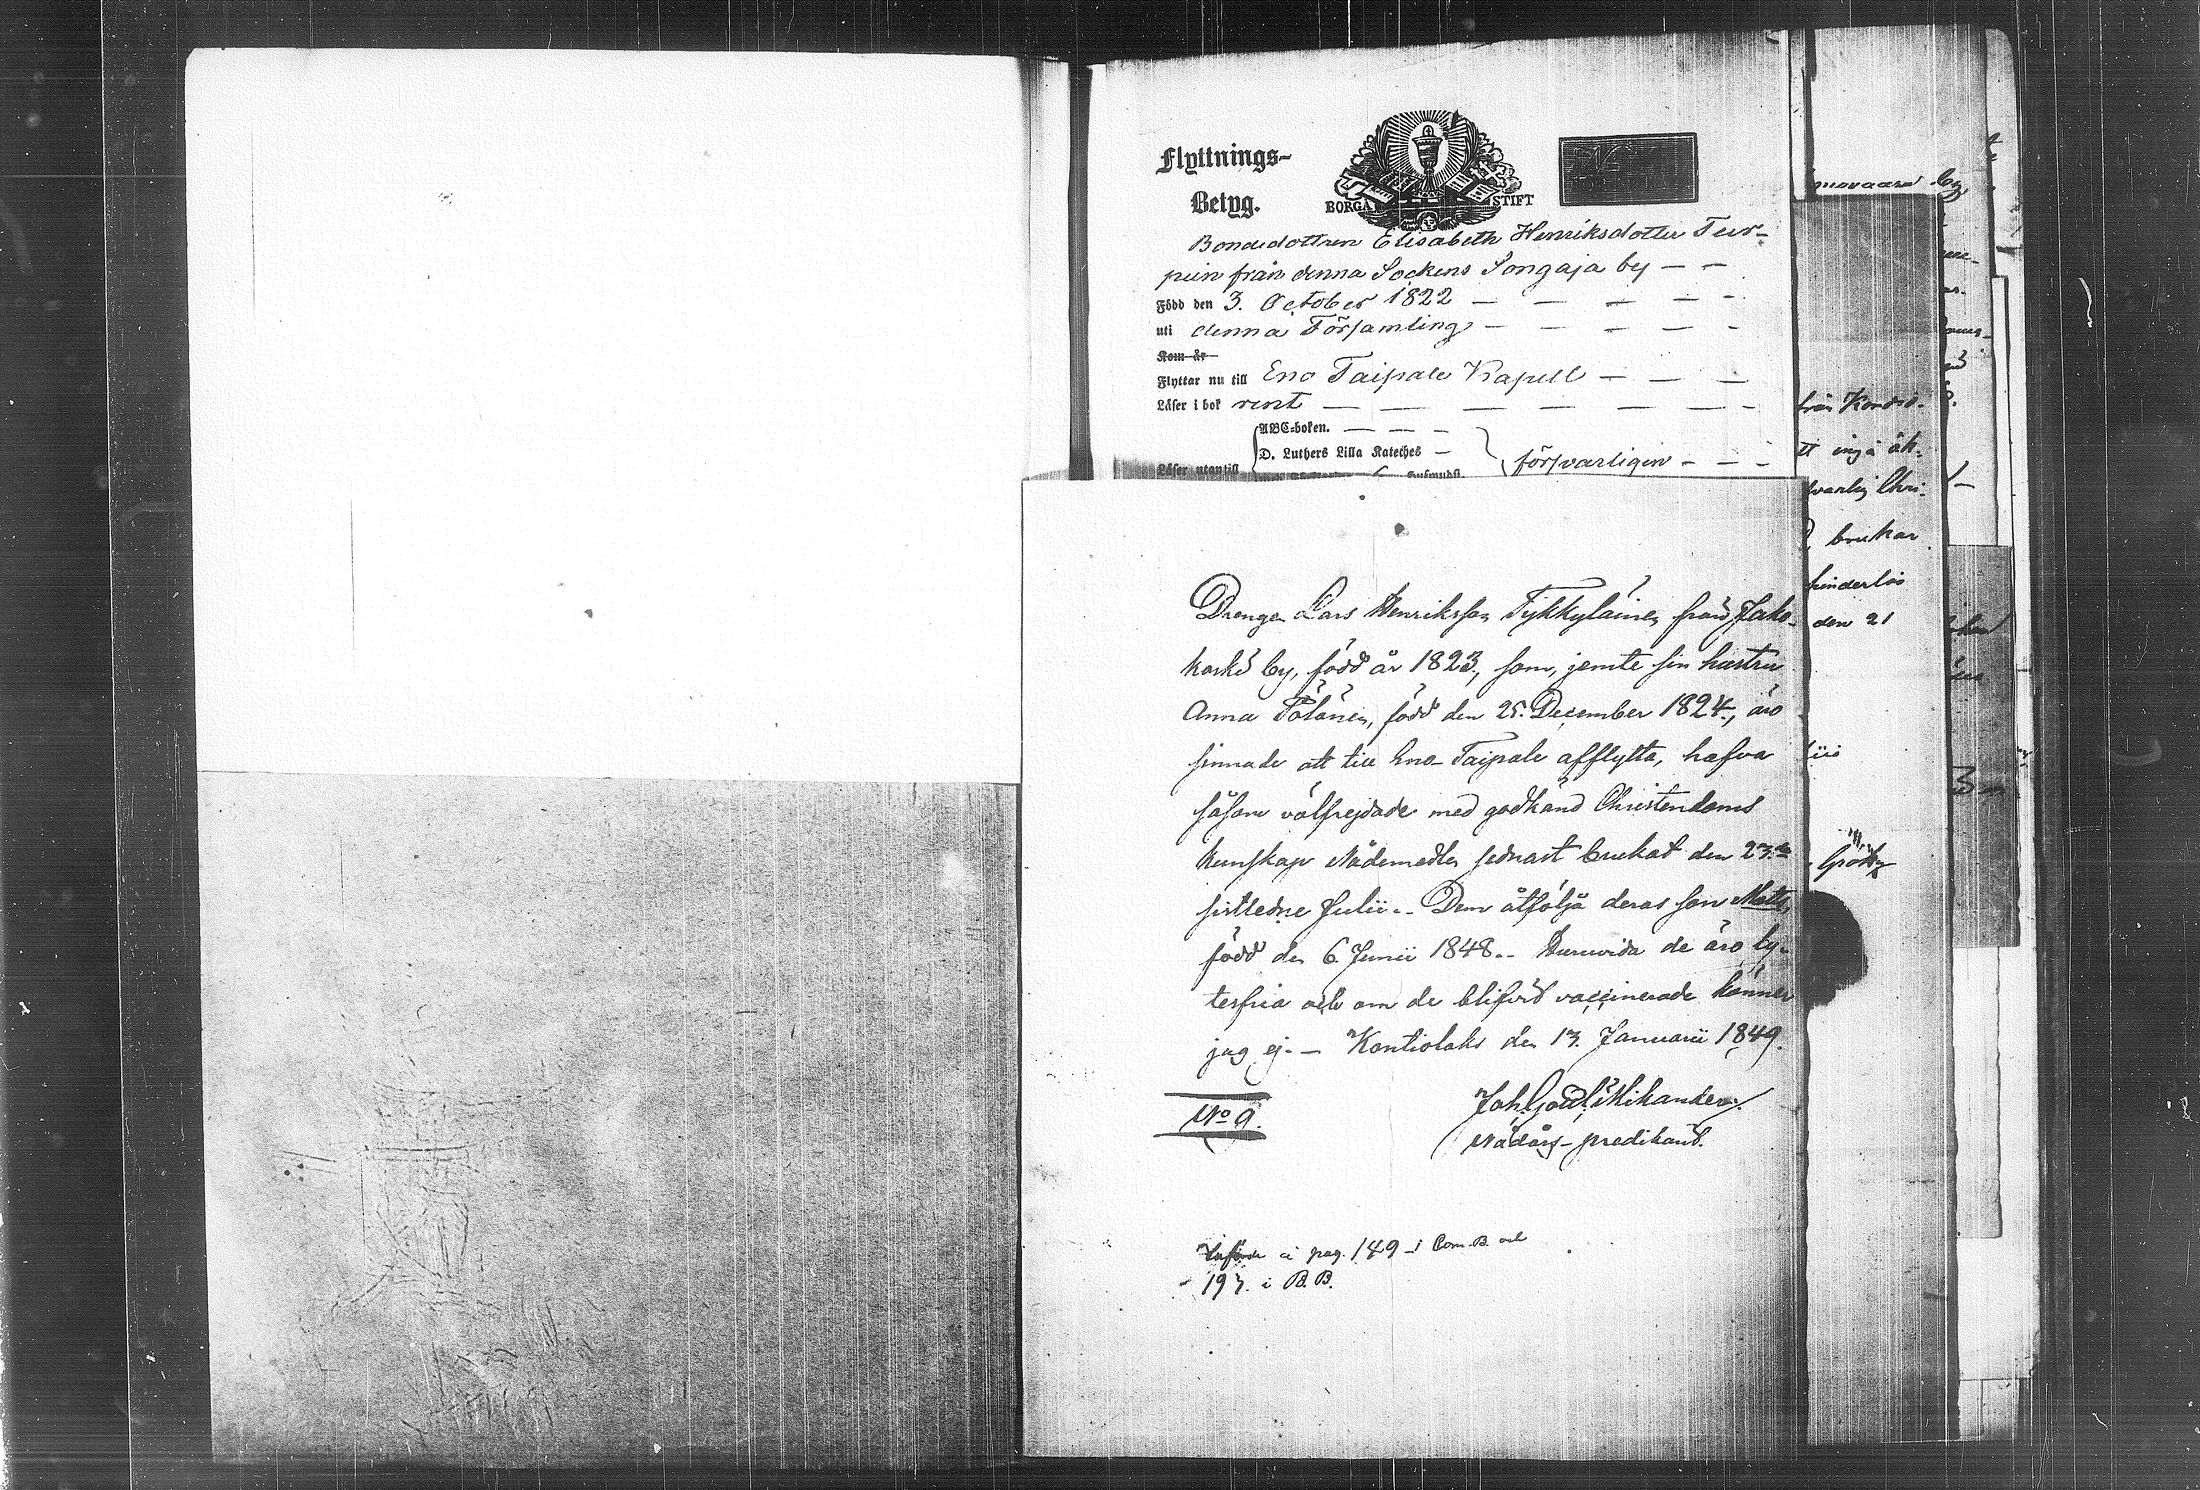 Flyttnings-
Betyg.
BORGÅ STIFT
Bondedottren Elisabeth Henriksdotter Tur-
pein från denna Sockens Songaja by — —
Född den 3. October 1822 — — — — —
uti denna Församling — — — — —
Kom år
Flyttar nu till Eno Taipale Kapell — — —
Läser i bok rent — — — — — —
ABC-boken. — — —
D. Luthers Lilla Kateches —
försvarligen - - -
Läser utantill
Drengen Lars Henriksson Tykkyläinen från Jako-
koski by, född år 1823, som, jemte sin hustru
Anna Pölönen, född den 25. December 1824, äro
sinnade att till Eno-Taipale afflytta, hafva
såsom välfrejdade med godkänd Christendoms
kunskap Nådemedlen sednast brukat den 23:de
sistledne Julii.- Dem åtfölja deras son Matts,
född den 6 Junii 1848.- Huruvida de äro ly-
tesfria och om de blifvit vaccinerade känner
jag ej. — Kontiolaks den 13. Januarii 1849.
Joh. Gottl. Mikander.
Nådårs-predikant.
No 9.
Införde å pag. 149 i Com. B. och
193. i B. B.
från
ingå
brukar
hinderlös
den 21